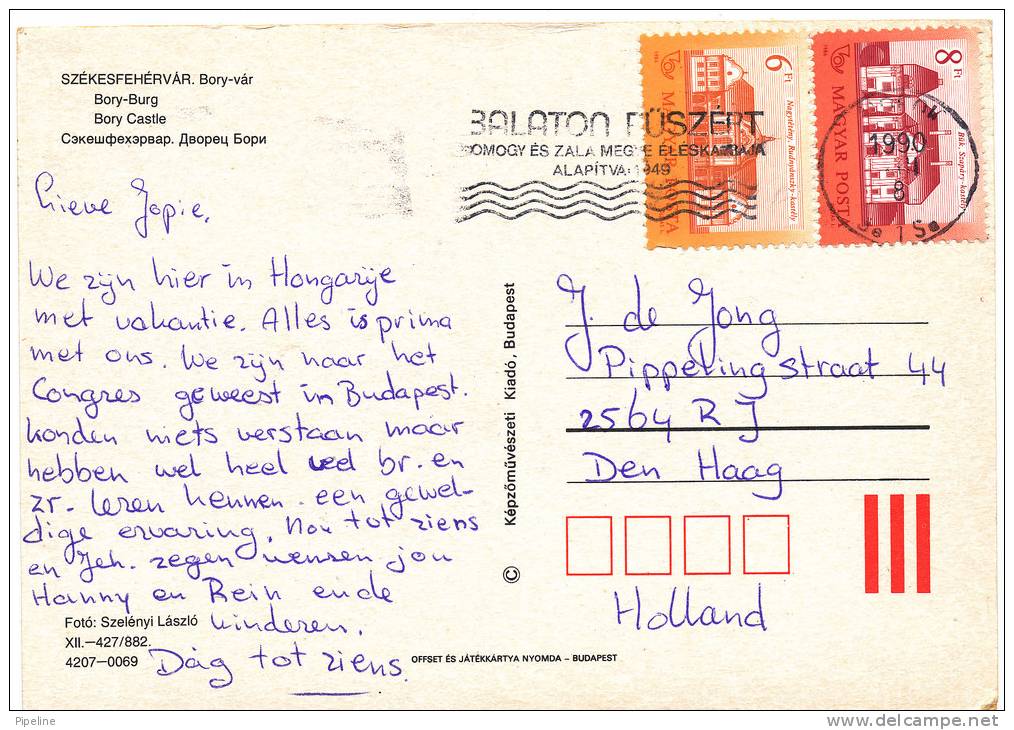 SZÉKESFEHÉRVÁR. Bory-vár
Bory-Burg
Bory Castle
Сэкешфехэрвар. Дворец Бори
Lieve Jopie,
We zijn hier in Hongarije
met vakantie. Alles is prima
met ons. We zijn naar het
Congres geweest in Budapest.
konden niets verstaan maar
hebben wel heel veel br. en
zr. leren kennen. een gewel-
dige ervaring. Nou tot ziens
en Jeh. zegen wensen jou
Hanny en Rein en de
kinderen.
Dág tot ziens.
Fotó: Szelényi László
XII.—427/882.
4207—0069
OFFSET ÉS JÁTÉKKÁRTYA NYOMDA – BUDAPEST
© Képzőművészeti Kiadó, Budapest
BALATON FÜSZÉRT
SOMOGY ÉS ZALA MEGYE ÉLÉSKAMRÁJA
ALAPÍTVA: 1949
6 Ft
Nagytétény, Rudnyánszky-kastély
MAGYAR POSTA
8 Ft
Bük, Szapáry-kastély
MAGYAR POSTA
1990
8
J. de Jong
Pippelingstraat 44
2564 RJ
Den Haag
Holland
Pipeline
www.delcampe.net